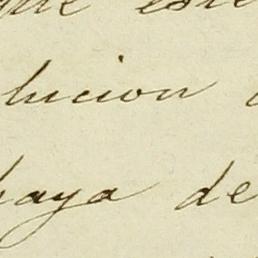 que este
lucion
haya de